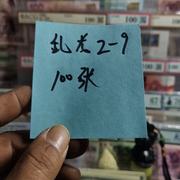 乱发2-9
100张